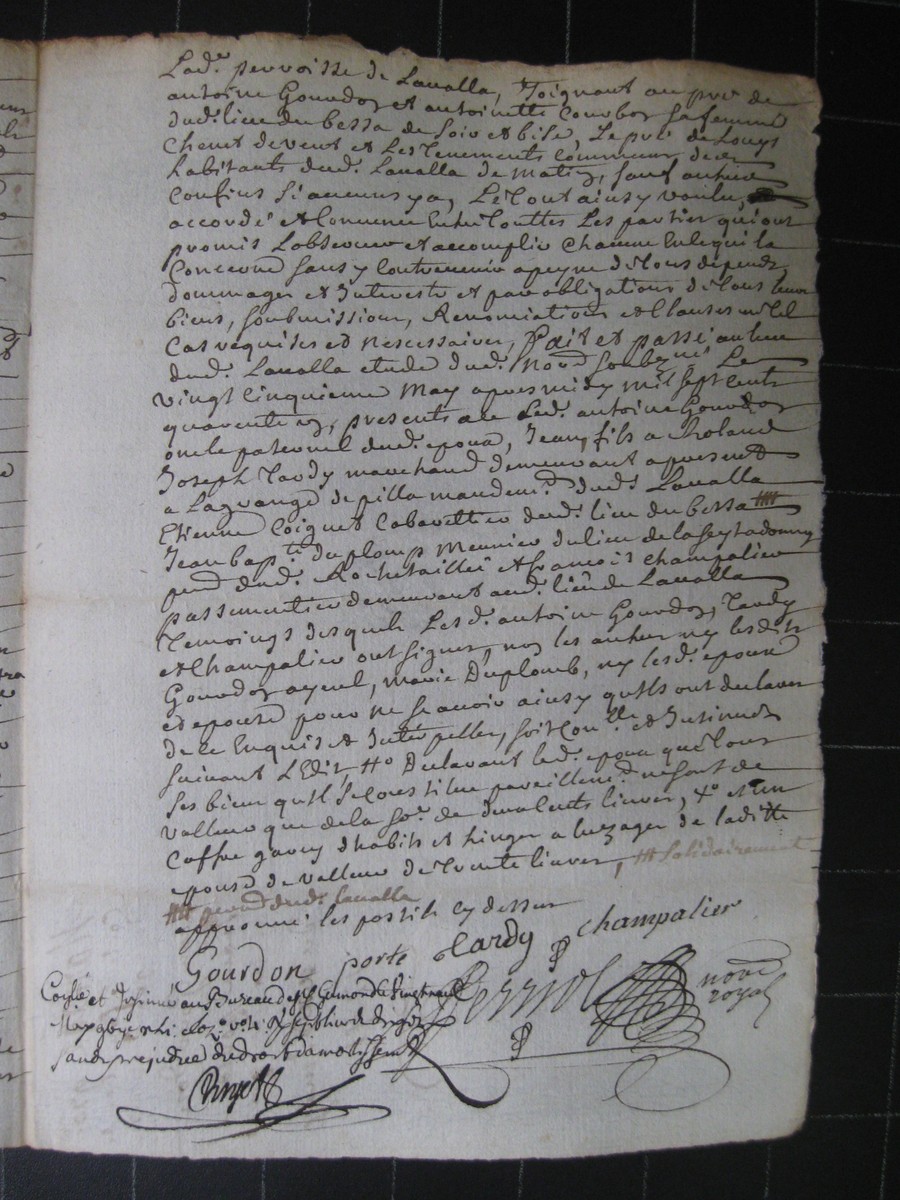 Lad.e perroisse de Lavalla, Joignant au pré de
antoine Gourdon et antoinette Courbon sa femme
dud. lieu du bessa de soir et bise, Le pré de Louys
Chenet de vent et Les tenements Communs des
habitants dud. Lavalla de matin, sauf autres
Confins si aucuns y a, Le tout ainsy voulu,
accordé et Convenu Entre touttes Les parties qui ont
promis L'observer et accomplir Chacune En ce qui la
Concerne sans y Contrevenir a peyne de tous depends
dommages et Interests et par obligations de tous leurs
biens, soubmissions, Renonciations et Clauses en tel
Cas requises et necessaires, Fait et passé au lieu
dud. Lavalla etude dud. No.re soubsigné Le
vingt Cinquieme May apres midy mil sept cents
quarente, presents a ce Led. antoine Gourdon
oncle paternel dud. epoux, Jean, fils a Roland
Joseph Tardy marchand demeurant a present
a Lagrange de pilla mandem.t dud. Lavalla
Etienne Coignet Cabarettier dud. lieu du bessa ###
Jean bap.te Duplomp Meunier du lieu de
par. dud. Rochetaillée et françois Champalier
passementier demeurant aud. lieu de Lavalla
Temoings desquels Lesd. antoine Gourdon, Tardy
et Champalier ont signés, non les autres ny lesdits
Gourdon ayeul, marie Duplomb, ny lesd. epoux
et epouse pour ne sçavoir ainsy qu'ils ont declarer
de ce Enquis et Interpellés, soit Con.llé et Insinué
suivant L'Edit, ## Declarant led. epoux que tous
ses bien qu'il se Constitue pareillem.t ne sont de
valleur que de la so.e de livres, 4º et un
Coffre garny d'habits et linges a l'uzager de laditte
epouse de valleur de trente livres, ### solidairement
### par. dud. Lavalla
approuvé les postils cy dessus
Gourdon porte Tardy Champalier
no.re royal
Conllé et Insinué au Bureau de
sans prejudice du droit